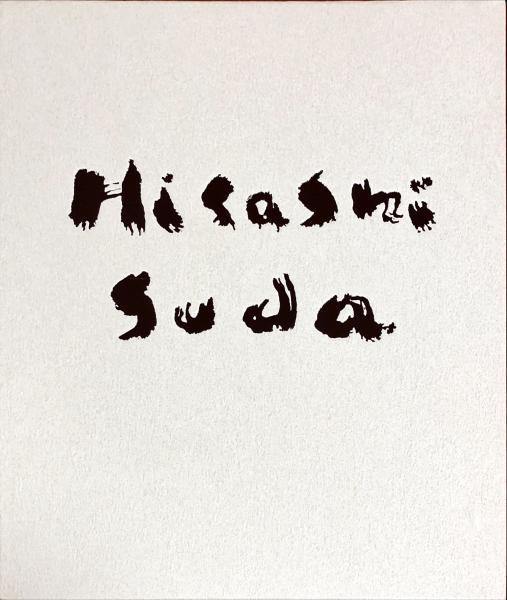 Hisashi
Suda